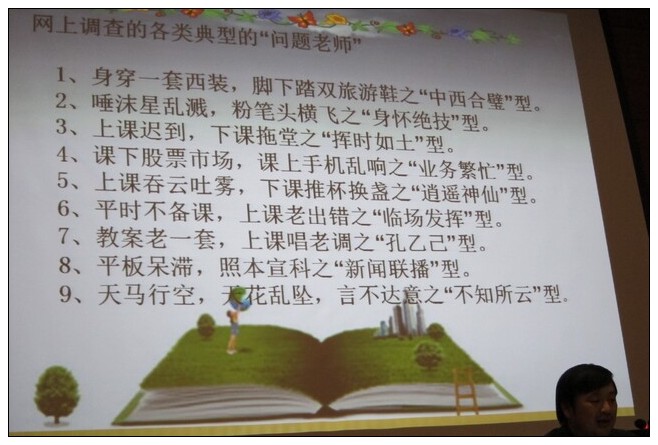 网上调查的各类典型的“问题老师”
1、身穿一套西装，脚下踏双旅游鞋之“中西合璧”型。
2、唾沫星乱溅，粉笔头横飞之“身怀绝技”型。
3、上课迟到，下课拖堂之“挥时如土”型。
4、课下股票市场，课上手机乱响之“业务繁忙”型。
5、上课吞云吐雾，下课推杯换盏之“逍遥神仙”型。
6、平时不备课，上课老出错之“临场发挥”型。
7、教案老一套，上课唱老调之“孔乙己”型。
8、平板呆滞，照本宣科之“新闻联播”型。
9、天马行空，天花乱坠，言不达意之“不知所云”型。